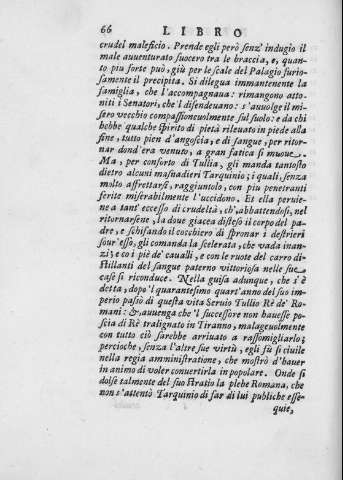 66 LIBRO
crudel maleficio. Prende egli però senz' indugio il
male auuenturato suocero tra le braccia, e, quan-
to piu forte può, giù per le scale del Palagio furio-
samente il precipita. Si dilegua immantenente la
famiglia, che l'accompagnaua: rimangono atto-
niti i Senatori, che 'l difendeuano: s'auuolge il mi-
sero vecchio compassioneuolmente sul suolo: e da chi
hebbe qualche spirito di pietà rileuato in piede alla
fine, tutto pien d'angoscia, e di sangue, per ritor-
nar dond' era venuto, a gran fatica si muoue.
Ma, per conforto di Tullia, gli manda tantosto
dietro alcuni masnadieri Tarquinio; i quali, senza
molto affrettarsi, raggiuntolo, con piu penetranti
ferite miserabilmente l'uccidono. Et ella peruie-
ne a tant' eccesso di crudeltà, ch', abbattendosi, nel
ritornarsene, la doue giacea disteso il corpo del pa-
dre, e schifando il cocchiero di spronar i destrieri
sour' esso, gli comanda la scelerata, che vada inan-
zi; e co i piè de' caualli, e con le ruote del carro di-
stillanti del sangue paterno vittoriosa nelle sue
case si riconduce. Nella guisa adunque, che s'è
detta, dopo 'l quarantesimo quart' anno del suo im-
perio passò di questa vita Seruio Tullio Rè de' Ro-
mani: & auuenga che 'l successore non hauesse po-
scia di Rè tralignato in Tiranno, malageuolmente
con tutto ciò sarebbe arriuato a rassomigliarlo;
percioche, senza l'altre sue virtù, egli fù sì ciuile
nella regia amministratione, che mostrò d'hauer
in animo di voler conuertirla in popolare. Onde si
dolse talmente del suo stratio la plebe Romana, che
non s'attentò Tarquinio di far di lui publiche esse-
quie,